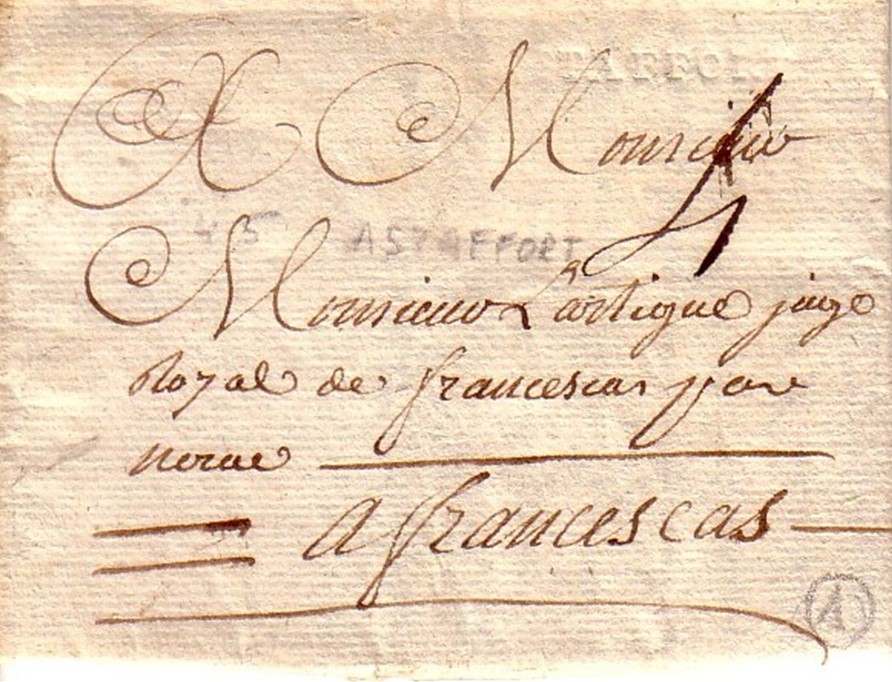 TAFFOR
A Monsieur
4
45 ASTAFFORT
Monsieur Lartigue juge
Royal de francescas par
nerac
A francescas
A